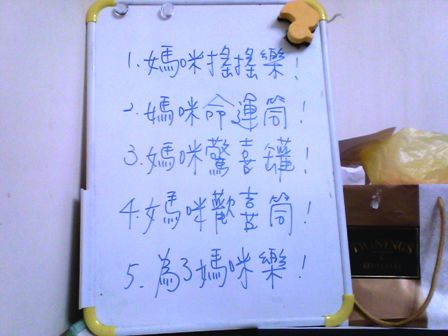 1.媽咪搖搖樂!
2.媽咪命運筒!
3.媽咪驚喜罐!
4.媽咪歡喜筒!
5.為了媽咪樂!
TWININGS